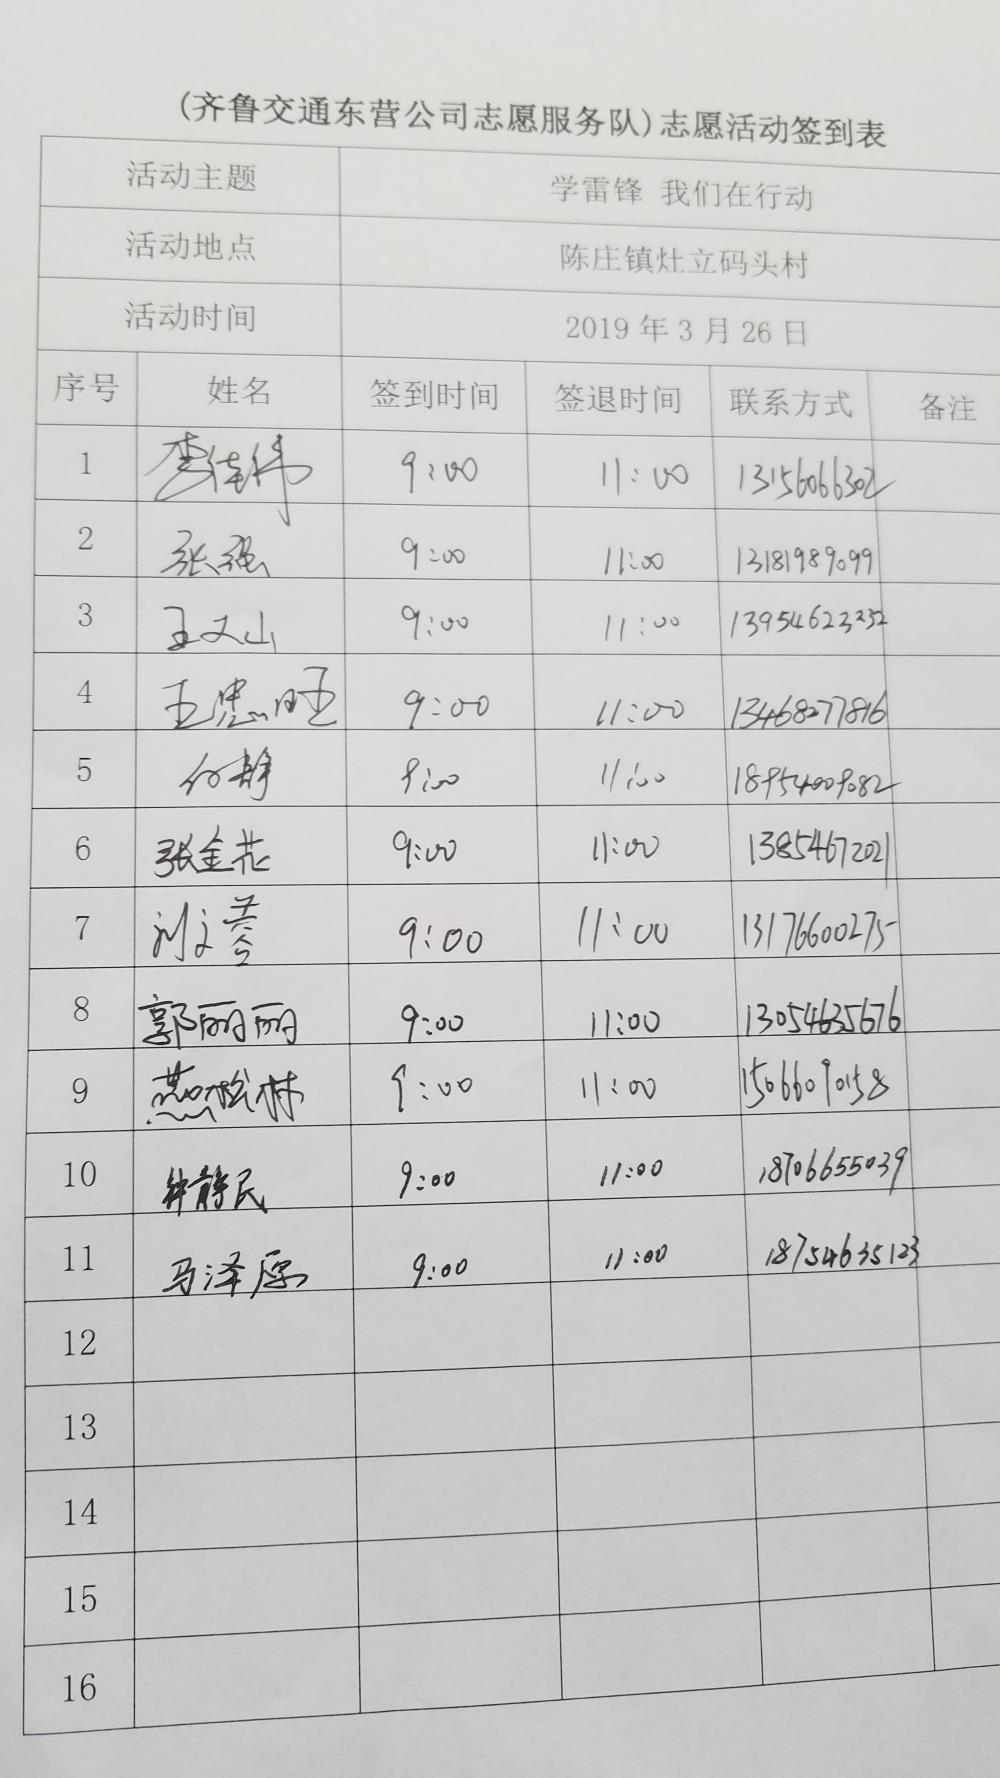 (齐鲁交通东营公司志愿服务队)志愿活动签到表
活动主题 学雷锋 我们在行动
活动地点 陈庄镇灶立码头村
活动时间 2019年3月26日
序号 姓名 签到时间 签退时间 联系方式 备注
1 李佳伟 9:00 11:00 13156066302
2 张强 9:00 11:00 13181989099
3 王文山 9:00 11:00 13954623232
4 王忠旺 9:00 11:00 13468277816
5 付静 9:00 11:00 18954009082
6 张金花 9:00 11:00 13854672021
7 刘文 9:00 11:00 13176600275
8 郭丽丽 9:00 11:00 13054635676
9 燕松林 9:00 11:00 15066090158
10 钟静民 9:00 11:00 18706655039
11 马泽原 9:00 11:00 18754635123
12
13
14
15
16